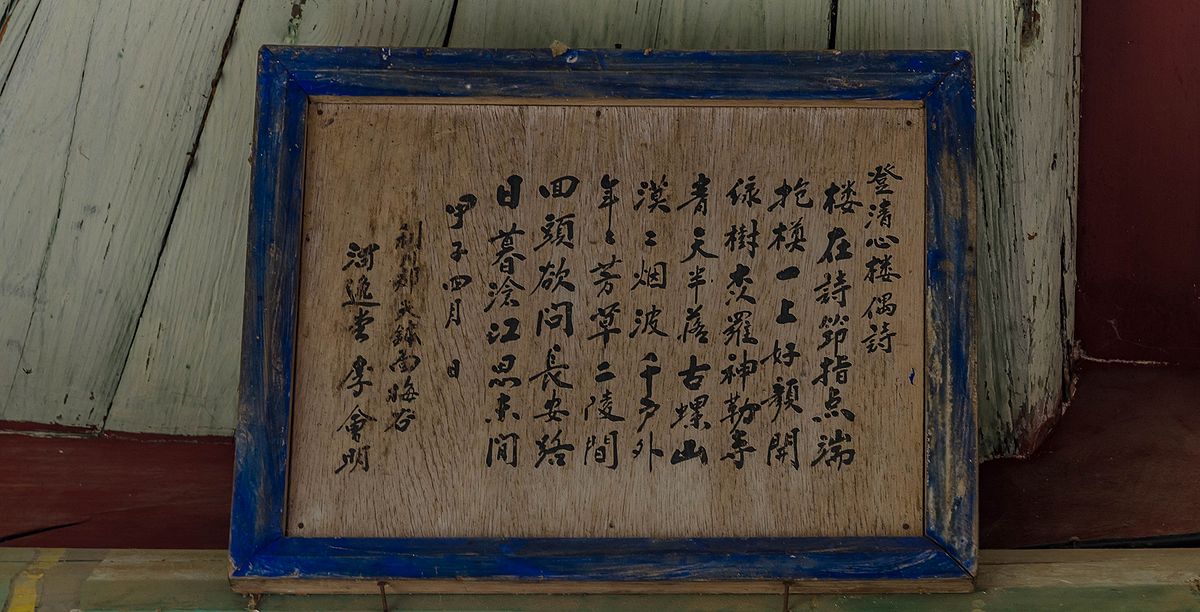 登清心楼偶詩
楼在詩筇指点端
抱横一上好顏開
依樹查羅神勒寺
青天半落古螺山
漠〻烟波千户外
年〻芳草二陵間
回頭欲問長安路
日暮滄江思未間
甲子四月 日
利川郡夫鉢面晦谷
逸堂李會明